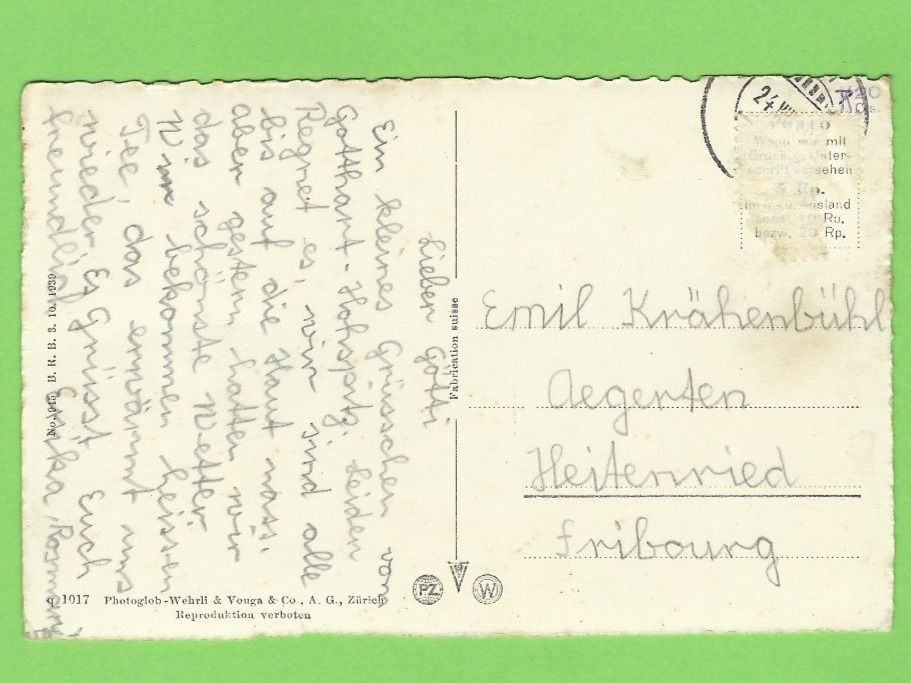 Lieber Götti
Ein kleines Grüsschen vom
Gotthart-Hohspitz. Leider
Regnet es, wir sind alle
bis auf die Haut nass.
Aber gestern hatten wir
das schönste Wetter.
Wir bekommen heissen
Tee, das erwärmt uns
wieder. Es Grüsst Euch
freundlich Erika,
No. 1945 B. R. B. 3. 10. 1939
q 1017 Photoglob-Wehrli & Vouga & Co., A. G., Zürich
Reproduktion verboten
Fabrication suisse
PZ W
24
nur mit
Unter-
schrift versehen
5 Rp.
Ausland
sonst 10 Rp.
bezw. 20 Rp.
Emil Krähenbühl
Aegerten
Heitenried
Fribourg